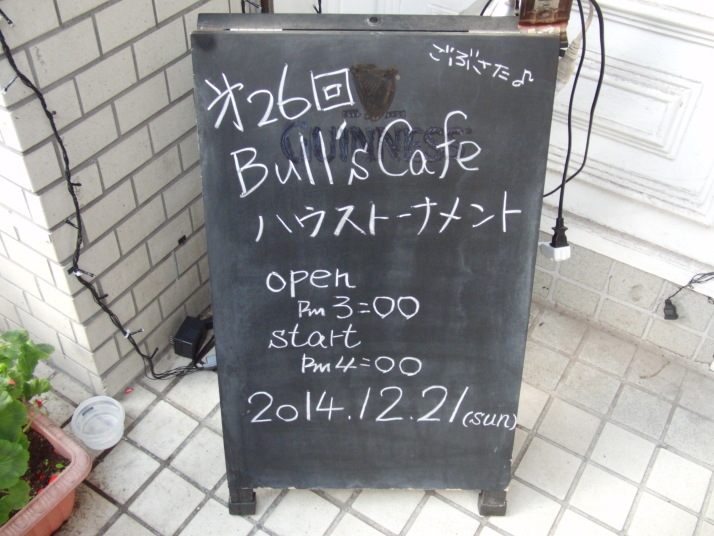 ごぶさた♪
第26回
GUINNESS
Bull's Cafe
ハウストーナメント
open
Pm 3=00
start
Pm 4=00
2014.12.21(sun)